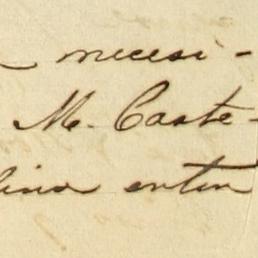 necesi-
M. Caste-
lina entin